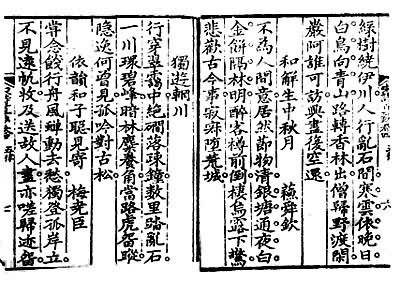 綠樹繞伊川人行亂石間寒雲依晚日
白鳥向青山路轉香林出僧歸野渡閒
嚴阿誰可訪興盡復空還
和解生中秋月 蘇舜欽
不為人間意居然節物清銀塘通夜白
金餅隔林明醉客樽前倒棲烏露下驚
悲歡古今事寂寂墮荒城
獨遊輞川
行穿翠靄中絕磵落疎鐘數里踏亂石
一川環碧峰暗林麋養角當路虎留蹤
隱逸何曾見孤吟對古松
依韻和子聰見寄 梅堯臣
嘗念餞行舟風蟬動去愁獨登孤岸立
不見遠帆收及送故人盡亦嗟歸迹留